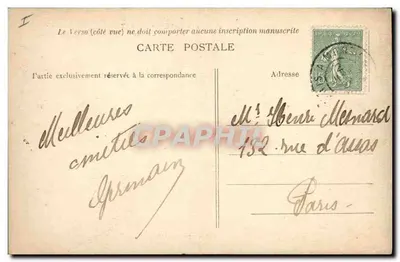 I
Le Verso (côté vue) ne doit comporter aucune inscription manuscrite
CARTE POSTALE
Partie exclusivement réservée à la correspondance
Adresse
Meilleures
amitiés
Germain
Mr Henri Mesnard
152 rue d'
Paris
CARTEPHILA